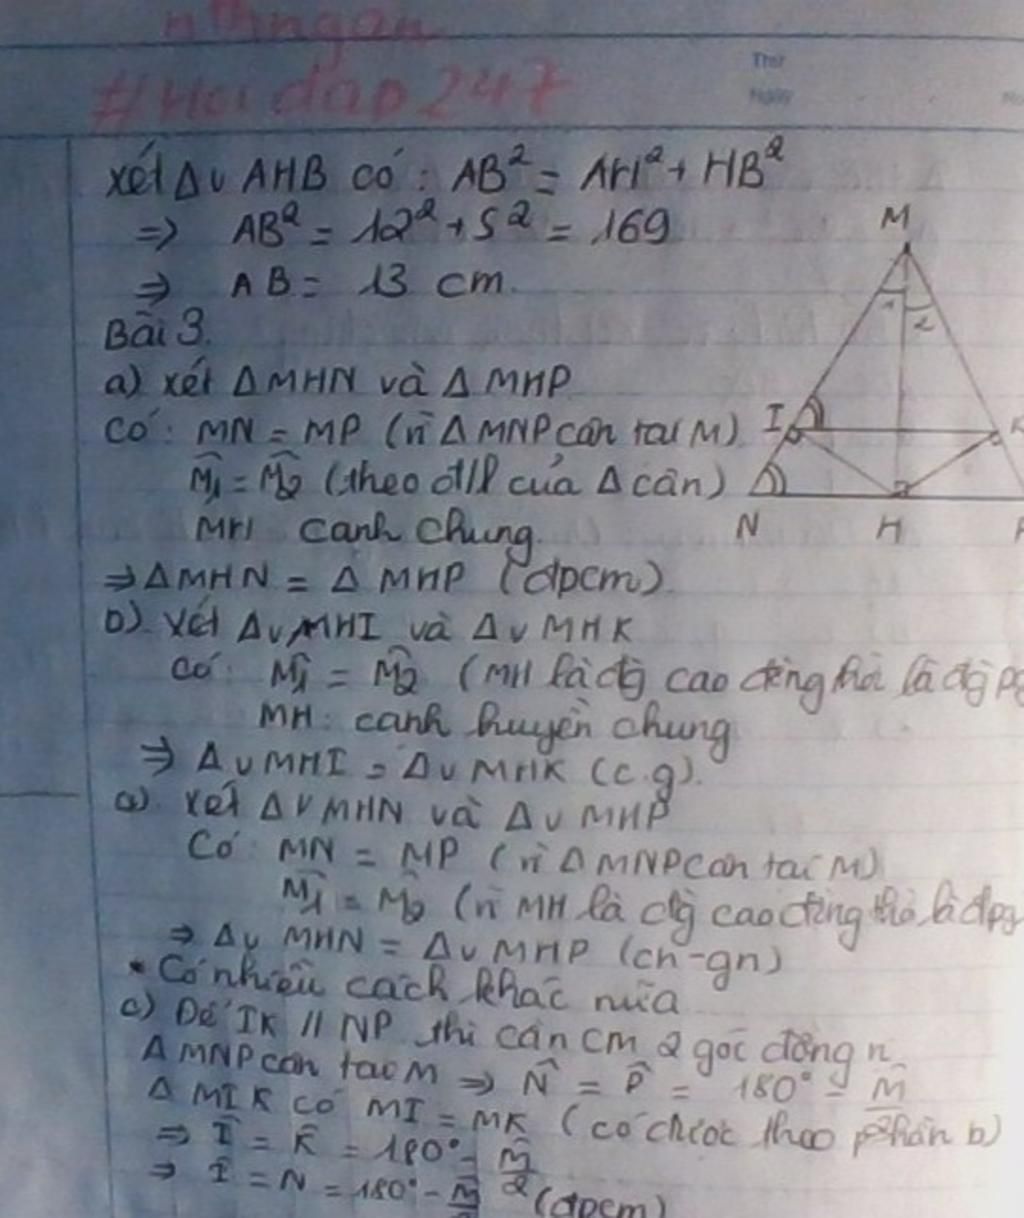 nthngan
#Hoidap247
Thứ
Ngày
Xét Δv AHB có: AB² = AH² + HB²
=> AB² = 12² + 5² = 169
=> AB = 13 cm.
Bài 3.
a) xét ΔMHN và ΔMHP
có: MN = MP (vì ΔMNP cân tại M)
M̂₁ = M̂₂ (theo đ/l của Δ cân)
MH cạnh chung.
=> ΔMHN = ΔMHP (đpcm)
b) Xét Δv MHI và Δv MHK
có: M̂₁ = M̂₂ (MH là đg cao đồng thời là đg pg
MH: cạnh huyền chung
=> Δv MHI = Δv MHK (c.g).
a) Xét Δv MHN và Δv MHP
Có: MN = MP (vì ΔMNP cân tại M)
M̂₁ = M̂₂ (vì MH là đg cao đồng thờ là đpg
=> Δv MHN = Δv MHP (ch-gn)
* Có nhiều cách khác nữa
c) Để IK // NP thì cần CM 2 góc đồng
ΔMNP cân tại M => N̂ = P̂ = 180° - M̂ / 2
ΔMIK có MI = MK (có được theo phần b)
=> Î = K̂ = 180° - M̂ / 2
=> Î = N = 180° - M̂ (đpcm)
M
1
2
I
K
N
H
P